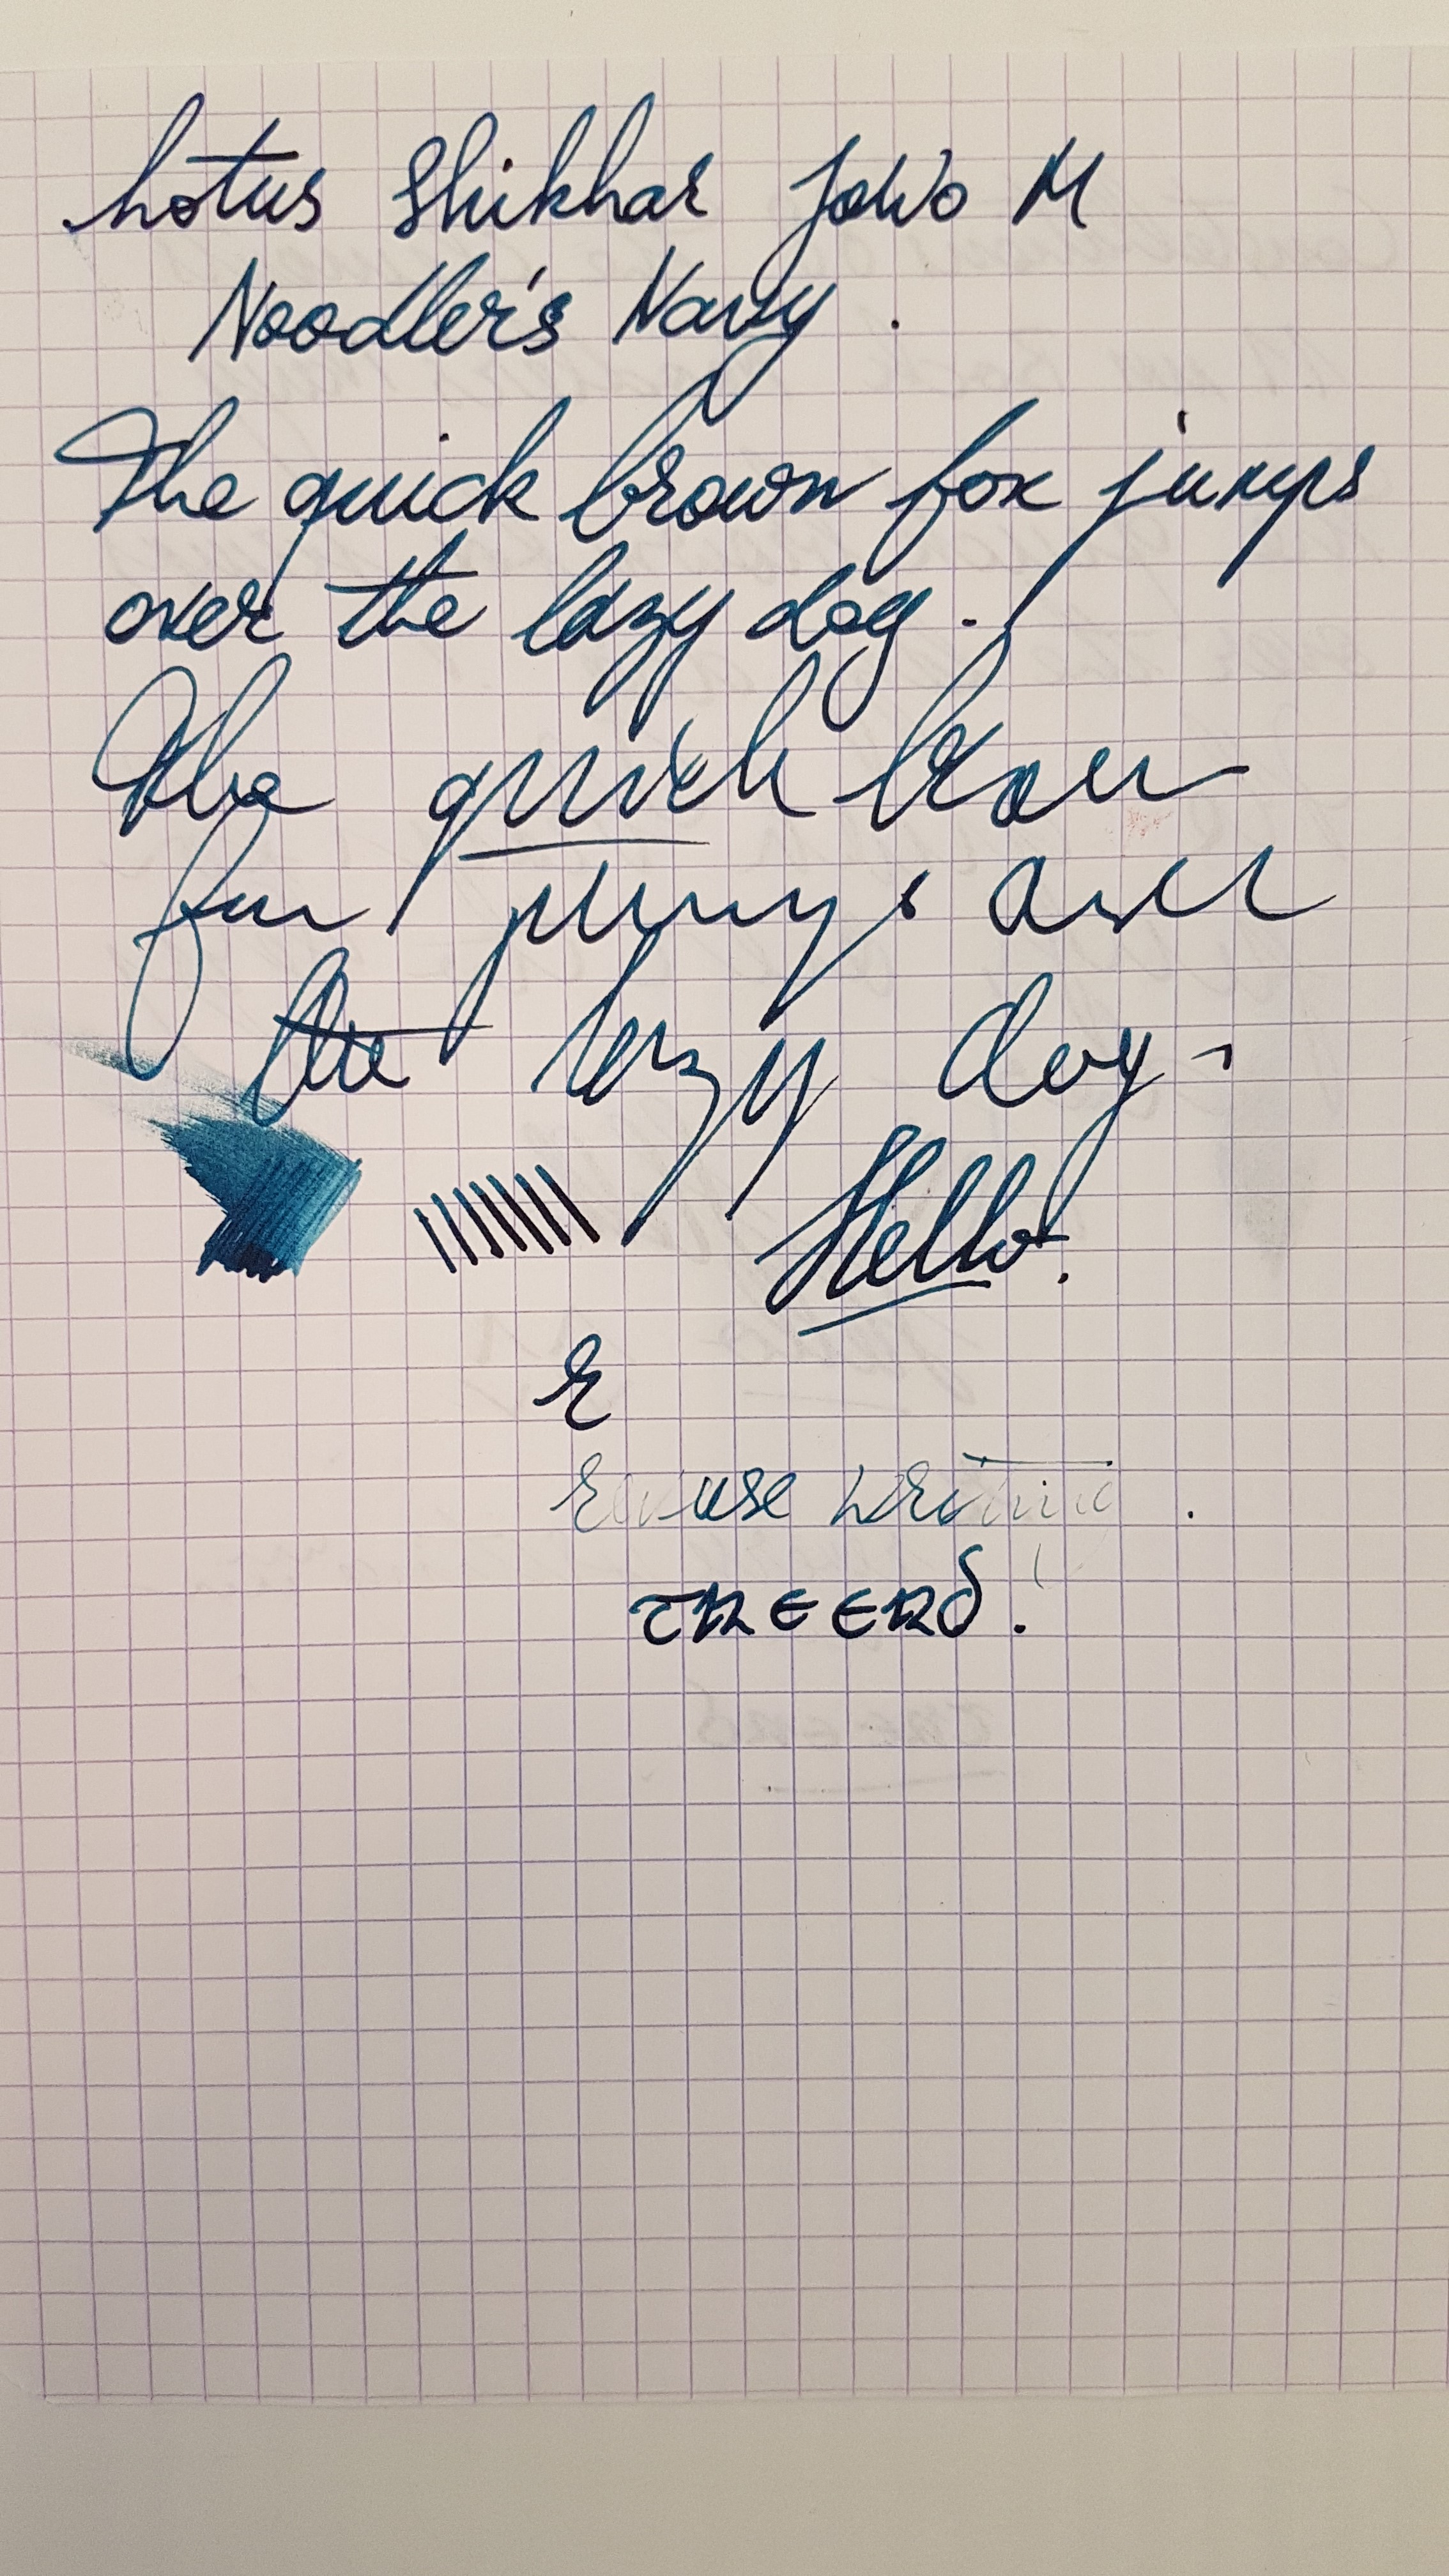 Lotus Shikhar JoWo M
Noodler's Navy.
The quick brown fox jumps
over the lazy dog.
The quick brown
fox jumps over
the lazy dog.
Hello!
R
Reverse writing.
CHEERS!